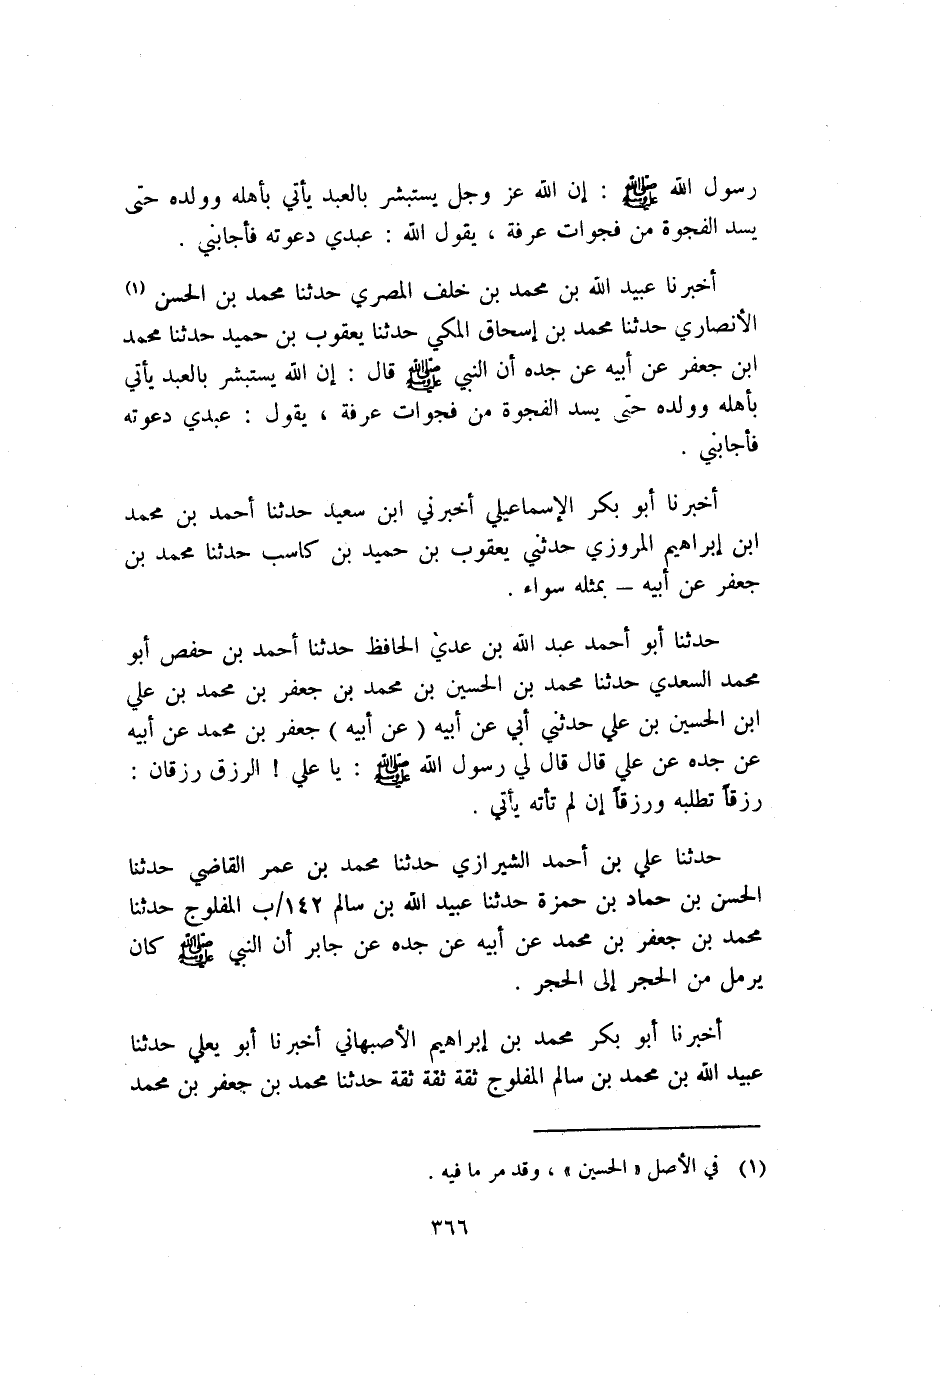 رسول الله ﷺ : إن الله عز وجل يستبشر بالعبد يأتي بأهله وولده حتى
يسد الفجوة من فجوات عرفة ، يقول الله : عبدي دعوته فأجابني .
أخبرنا عبيد الله بن محمد بن خلف المصري حدثنا محمد بن الحسن (١)
الأنصاري حدثنا محمد بن إسحاق المكي حدثنا يعقوب بن حميد حدثنا محمد
ابن جعفر عن أبيه عن جده أن النبي ﷺ قال : إن الله يستبشر بالعبد يأتي
بأهله وولده حتى يسد الفجوة من فجوات عرفة ، يقول : عبدي دعوته
فأجابني .
أخبرنا أبو بكر الإسماعيلي أخبرني ابن سعيد حدثنا أحمد بن محمد
ابن إبراهيم المروزي حدثني يعقوب بن حميد بن كاسب حدثنا محمد بن
جعفر عن أبيه – بمثله سواء .
حدثنا أبو أحمد عبد الله بن عدي الحافظ حدثنا أحمد بن حفص أبو
محمد السعدي حدثنا محمد بن الحسين بن محمد بن جعفر بن محمد بن علي
ابن الحسين بن علي حدثني أبي عن أبيه ( عن أبيه ) جعفر بن محمد عن أبيه
عن جده عن علي قال قال لي رسول الله ﷺ : يا علي ! الرزق رزقان :
رزقاً تطلبه ورزقاً إن لم تأته يأتي .
حدثنا علي بن أحمد الشيرازي حدثنا محمد بن عمر القاضي حدثنا
الحسن بن حماد بن حمزة حدثنا عبيد الله بن سالم ١٤٢/ب المفلوج حدثنا
محمد بن جعفر بن محمد عن أبيه عن جده عن جابر أن النبي ﷺ كان
يرمل من الحجر إلى الحجر .
أخبرنا أبو بكر محمد بن إبراهيم الأصبهاني أخبرنا أبو يعلي حدثنا
عبيد الله بن محمد بن سالم المفلوج ثقة ثقة ثقة حدثنا محمد بن جعفر بن محمد
(١) في الأصل « الحسين » ، وقد مر ما فيه .
٣٦٦